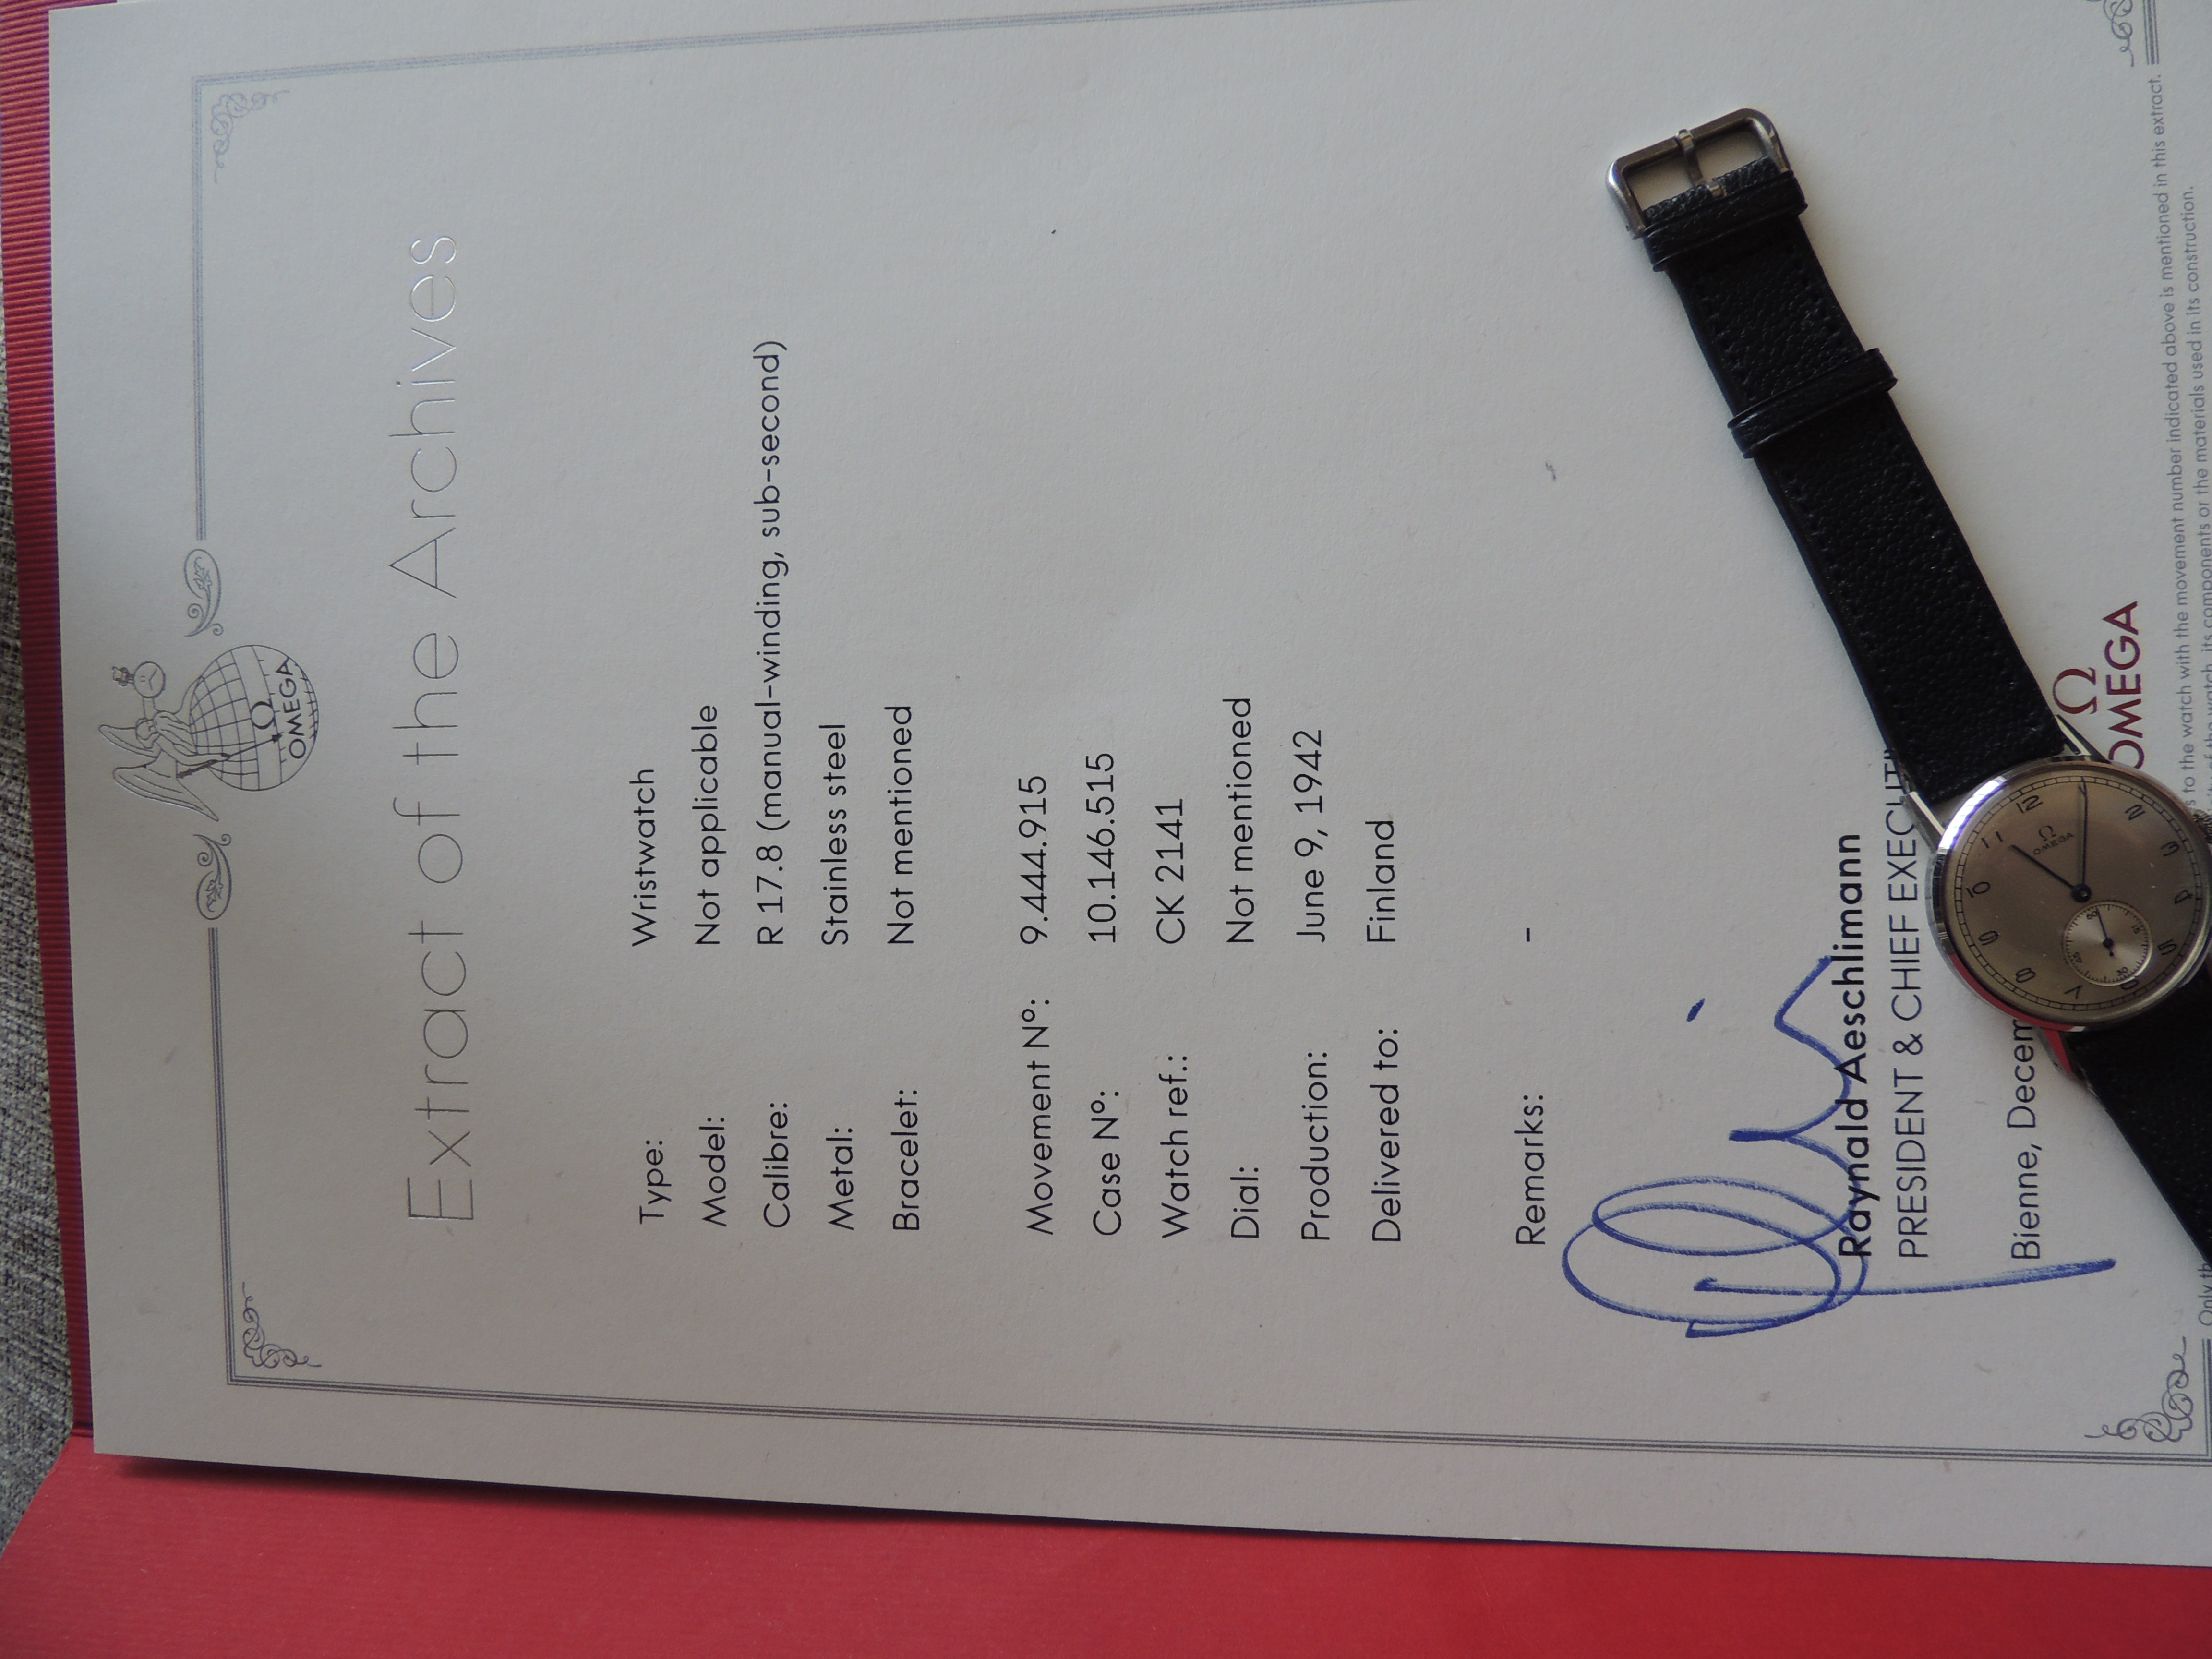 Ω
OMEGA
Extract of the Archives
Type: Wristwatch
Model: Not applicable
Calibre: R 17.8 (manual-winding, sub-second)
Metal: Stainless steel
Bracelet: Not mentioned
Movement Nº: 9.444.915
Case Nº: 10.146.515
Watch ref.: CK 2141
Dial: Not mentioned
Production: June 9, 1942
Delivered to: Finland
Remarks: -
Raynald Aeschlimann
PRESIDENT & CHIEF
Bienne,
Ω
OMEGA
to the watch with the movement number indicated above is mentioned in this extract.
its components or the materials used in its construction.
Ω
OMEGA
12
2
3
4
5
7
8
9
10
11
60
15
30
45